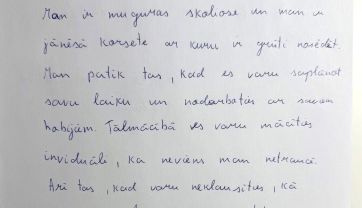 Man ir muguras skolioze un man ir
jānēsā korsete ar kuru ir grūti nosēdēt.
Man patīk tas, kad es varu saplānot
savu laiku un nodarbotās ar saviem
hobijiem. Tālmācībā es varu mācītes
inviduāli, ka neviens man netraucē.
Arī tas, kad varu neklausītes, kā